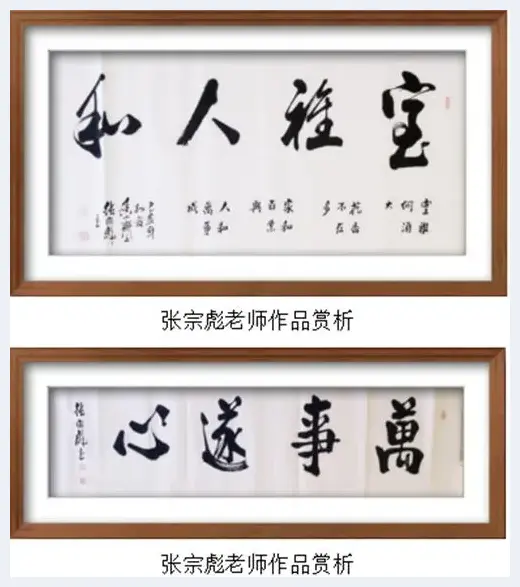 室雅人和
室雅
何須
大
花香
不在
多
家和
百業
興
人和
萬事
成
張宗彪
张宗彪老师作品赏析
萬事遂心
張宗彪
张宗彪老师作品赏析